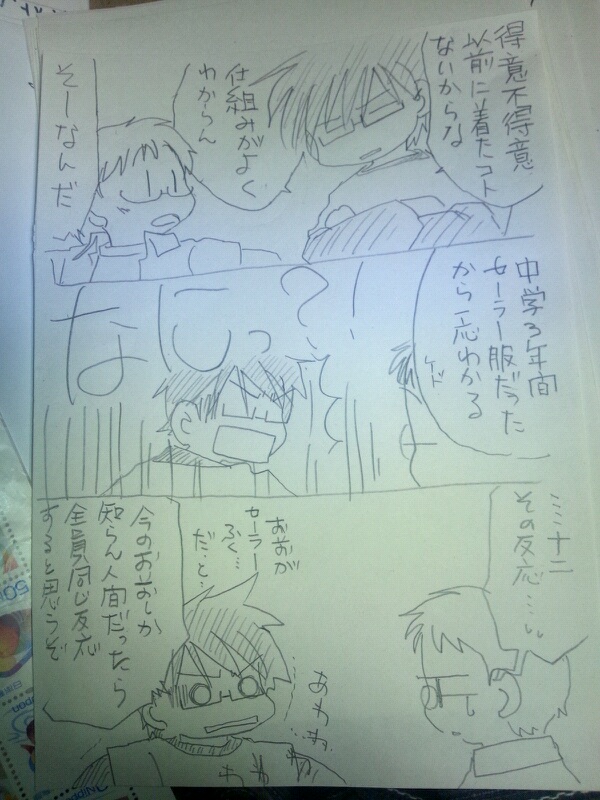 得意不得意
以前に着たコト
ないからな
仕組みがよく
わからん
そーなんだ
中学3年間
セーラー服だった
から一応わかる
ケド
なにっ?!
……十二
その反応……
おおが
セーラー
ふく…
だ…と…
あわわ
わわわ
今のおおしか
知らん人間だったら
全員同じ反応
すると思うぞ